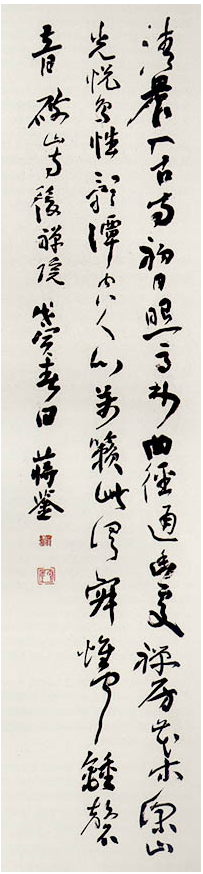 清晨入古寺初日照高林曲徑通幽處禪房花木深山
光悅鳥性影潭空人心萬籟此俱寂惟聞鐘磬
音破山寺後禪院戊寅春日蔣